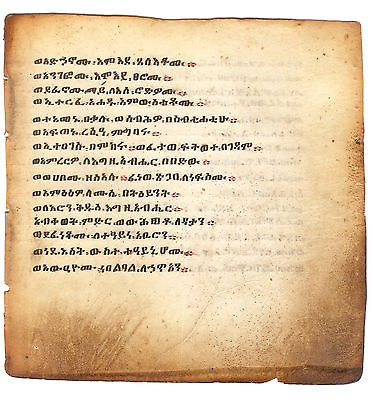 ወአድኀኖሙ፡እምእደ፡ጸላእቶሙ።
ወአንገፎሙ፡እምእደ፡ፀሮሙ።
ወደፈኖሙ፡ማይ፡ለእለ፡ሮድዎሙ።
ወኢተርፈ፡አሐዱ፡እምውስቴቶሙ።
ወተአመኑ፡በቃሉ፡ወሰብሕዎ፡በስብሐቲሁ።
ወአፍጠኑ፡ረሲዓ፡ምግባሮ።
ወኢተዐገሡ፡በምክሩ።ወፈተዉ፡ፍትወተ፡በገዳም።
ወአምረርዎ፡ለእግዚአብሔር፡በበድው።
ወወሀቦሙ፡ዘሰአሉ።ፈነወ፡ጽጋበ፡ለነፍሶሙ።
ወአምዕዕዎ፡ለሙሴ፡በትዕይንት።
ወለአሮን፡ቅዱሰ፡እግዚአብሔር።
አብቀወት፡ምድር፡ወውሕጠቶ፡ለዳታን።
ወደፈነቶሙ፡ለተዓይነ፡አቤሮን።
ወነደ፡እሳት፡ውስተ፡ተዓይኒሆሙ።
ወአውዐዮሙ፡ነበልባል፡ለኃጥአን።